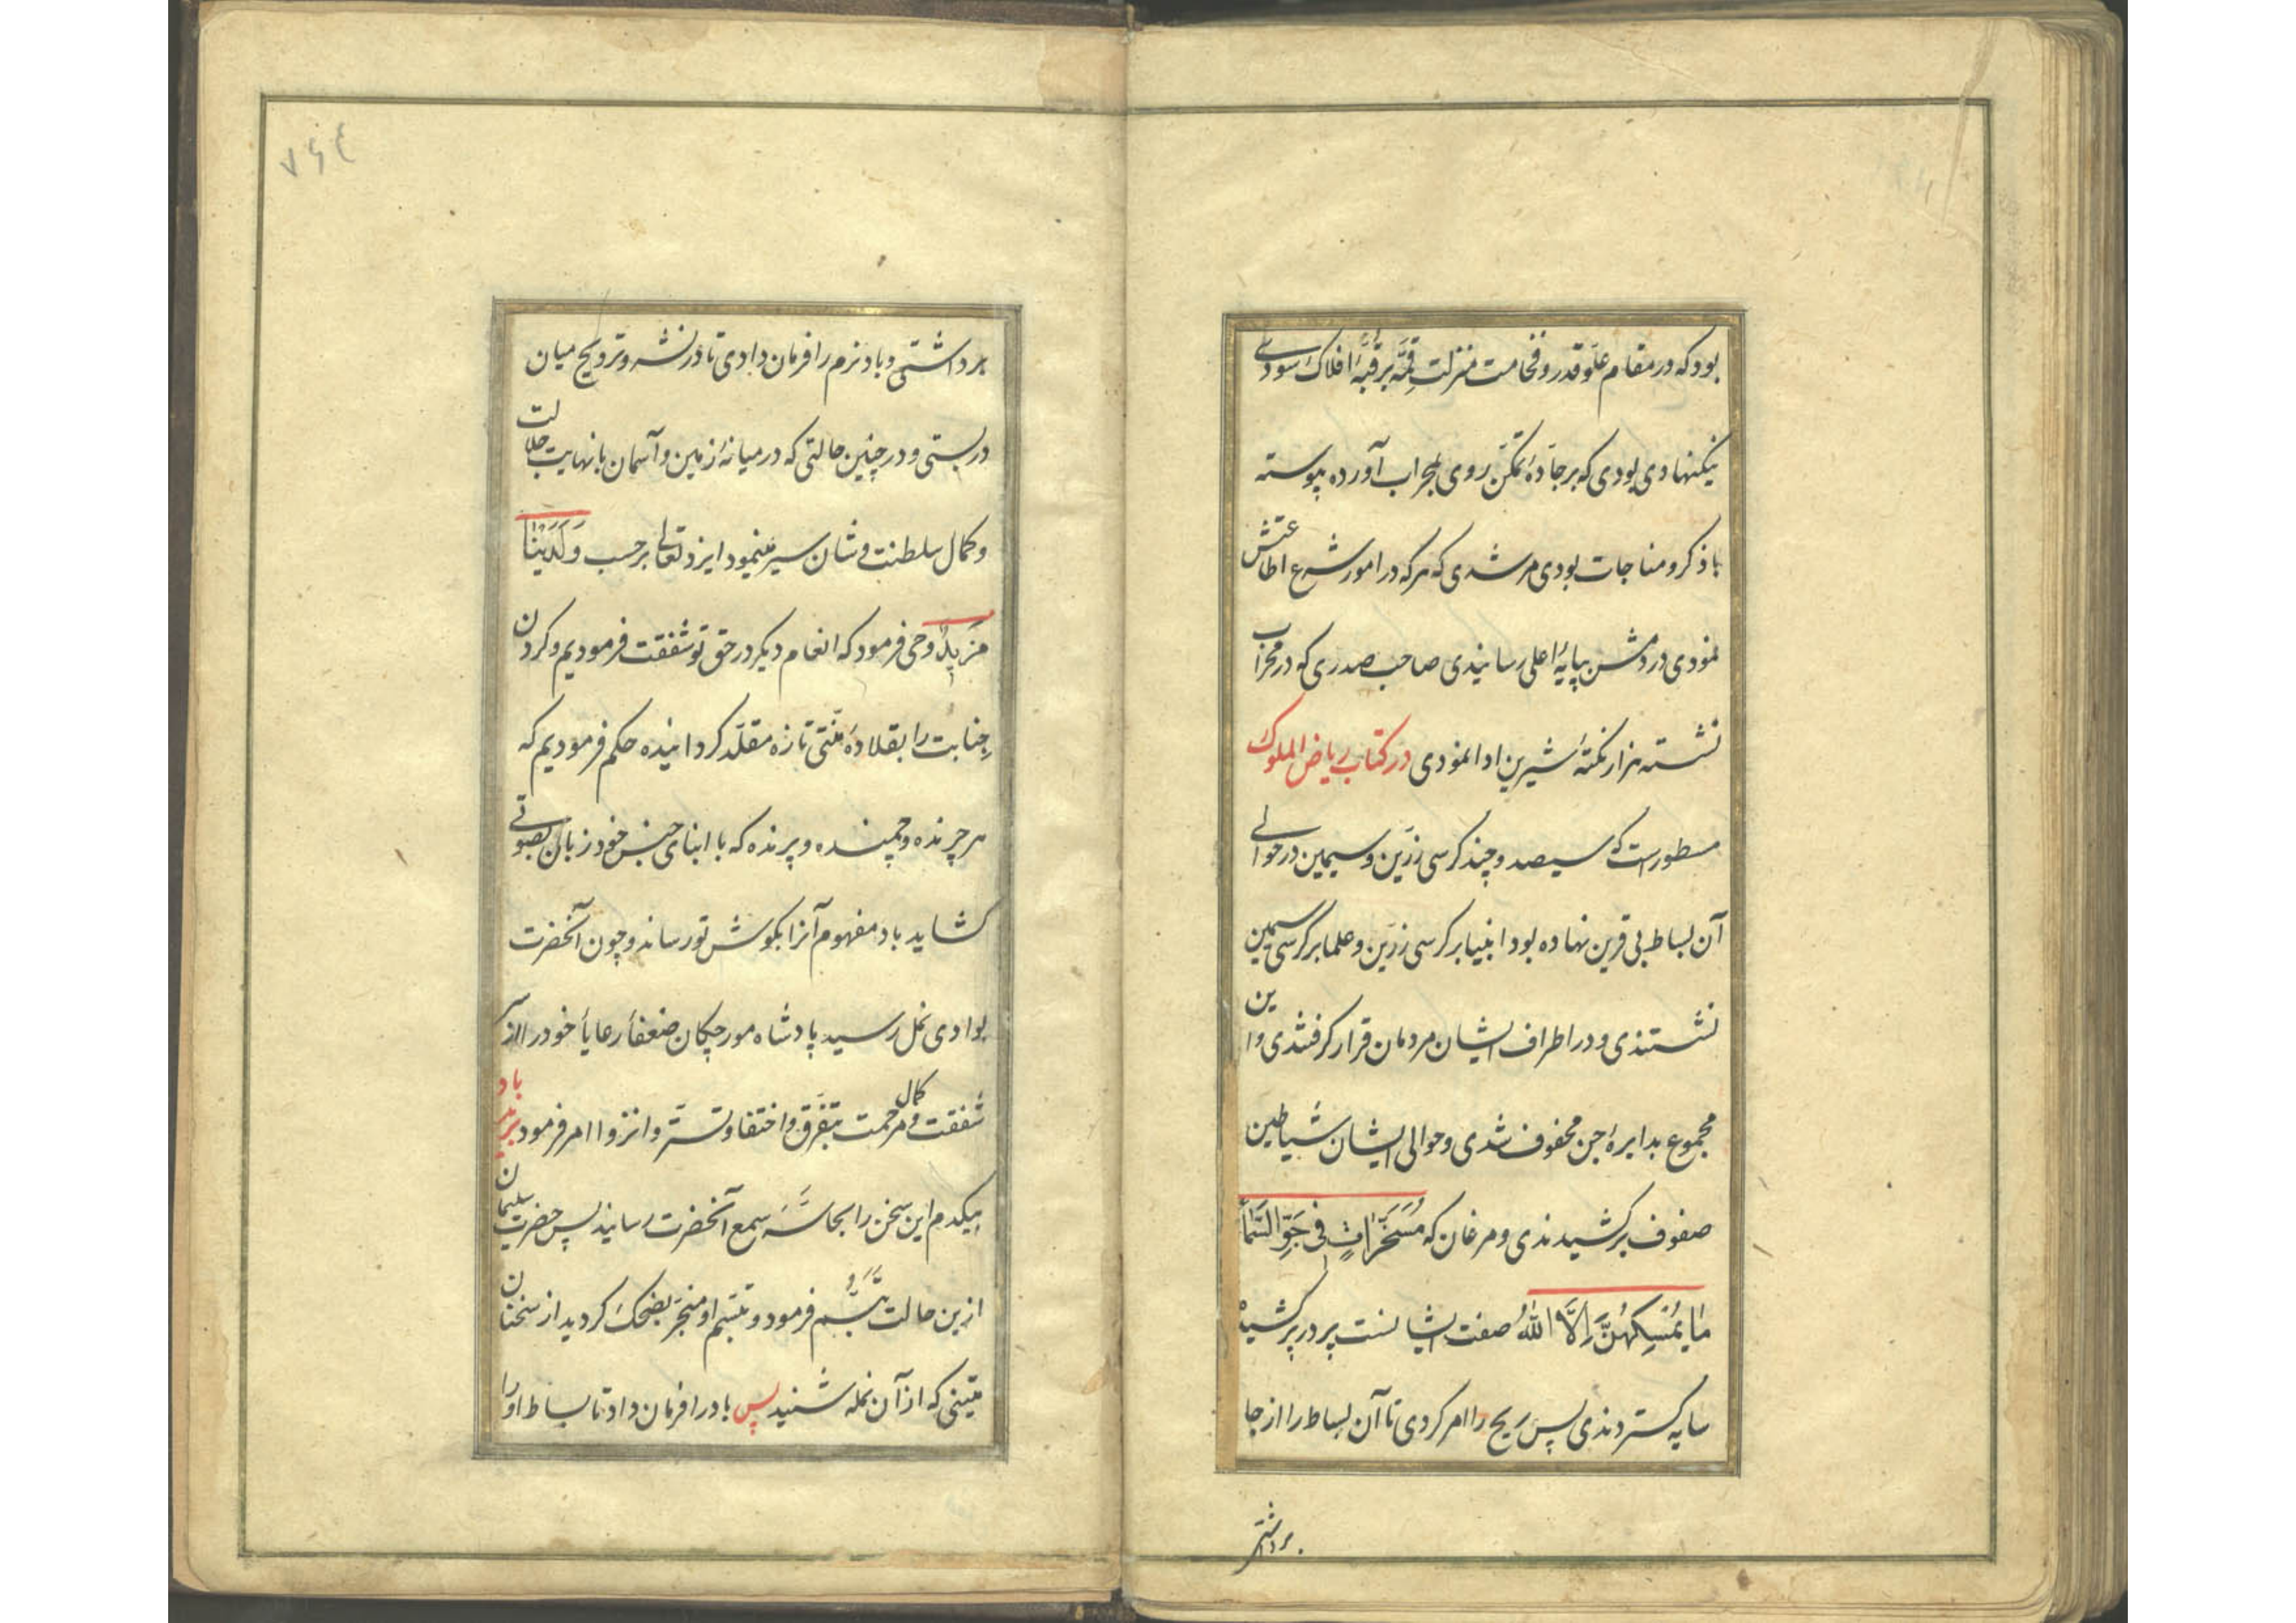 بود که در مقام علو قدر و فخامت منزلت قمّه بر قبّهٔ افلاک سودی
نیکنهادی بودی که بر جادهٔ تمکّن روی بمحراب آورده پیوسته
با ذکر و مناجات بودی مرشدی که هر که در امور شرع اطاعتش
نمودی دردمش بپایهٔ اعلی رسانیدی صاحب صدری که در محراب
نشسته هزار نکتهٔ شیرین ادا نمودی در کتاب ریاض الملوک
مسطور است که سیصد و چند کرسی زرّین و سیمین در حوالی
آن بساط بی قرین نهاده بود انبیا بر کرسی زرّین و علما بر کرسی سیمین
نشستندی و در اطراف ایشان مردمان قرار گرفتندی و این
مجموع بدایرهٔ جن محفوف شدی و حوالی ایشان شیاطین
صفوف برکشیدندی و مرغان که مُسَخَّرَاتٍ فِی جَوِّ السَّمَآ
مَا یُمْسِکُهُنَّ اِلَّا اللّٰهُ صفت ایشانست پر در پر کشیده
سایه گستردندی پس ریح را امر کردی تا آن بساط را از جا
برداشتی
۷۶۴
برداشتی و باد نرم را فرمان دادی تا در نشر و ترویح میان
دربستی و در چنین حالتی که در میانهٔ زمین و آسمان با نهایت جلالت
و کمال سلطنت و شان سیر مینمود ایزد تعالی بر حسب وَلَدَیْنَا
مَزِیدٌ وحی فرمود که انعام دیگر در حق تو شفقت فرمودیم و گردن
جنابت را بقلادهٔ منّتی تازه مقلّد گردانیده حکم فرمودیم که
هر چرنده و چمنده و پرنده که با ابنای جنس خود زبان بصوتی
گشاید باد مفهوم آنرا بگوش تو رساند و چون آنحضرت
بوادی نمل رسید پادشاه مورچگان ضعفأ رعایأ خود را از سر
شفقت و کمال مرحمت بتفرّق و اختفا و تستّر و انزوا امر فرمود باد
میکدم این سخن را بحاسّهٔ سمع آنحضرت رسانید پس حضرت سلیمان
ازین حالت تبسّم فرمود و تبسّم او منجر بضحک گردید از سخنان
متینی که از آن نمله شنید پس باد را فرمان داد تا بساط او را